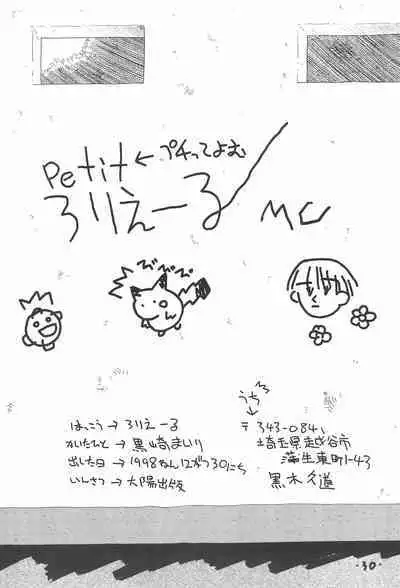 Petit ← プチってよむ
ろりえーる
MC
びびびび
うち
はっこう → ろりえーる
かいたひと → 黒崎まいり
出した日 → 1998ねん12がつ30にち
いんさつ → 太陽出版
〒343-0841
埼玉県越谷市
蒲生東町1-43
黒木久道
・30・